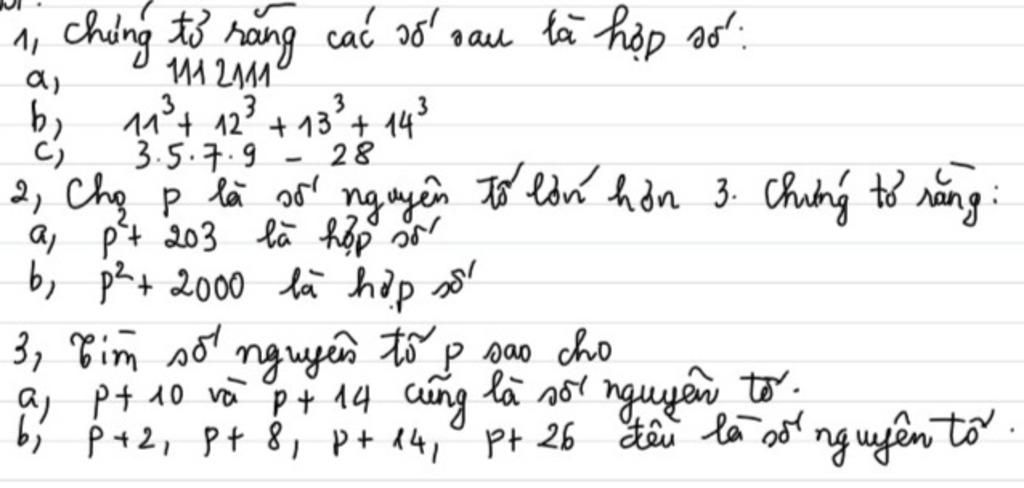 1, Chứng tỏ rằng các số sau là hợp số:
a, 1112111
b, 11³ + 12³ + 13³ + 14³
c, 3.5.7.9 - 28
2, Cho p là số nguyên tố lớn hơn 3. Chứng tỏ rằng:
a, p² + 203 là hợp số
b, p² + 2000 là hợp số
3, Tìm số nguyên tố p sao cho
a, p + 10 và p + 14 cũng là số nguyên tố.
b, p + 2, p + 8, p + 14, p + 26 đều là số nguyên tố.